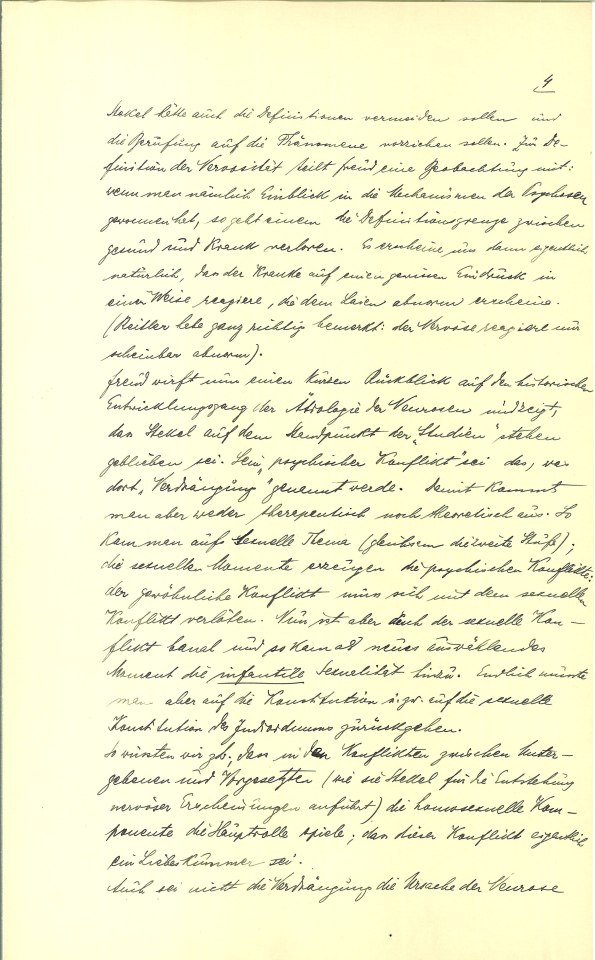 4
Stekel hätte auch die Definitionen vermeiden sollen und
die Berufung auf die Phänomene vorziehen sollen. Zur De-
finition der Nervosität teilt Freud eine Beobachtung mit:
wenn man nämlich Einblick in die Mechanismen der Psychosen
genommen hat, so geht einem die Definitionsgrenze zwischen
gesund und Krank verloren. Es erscheine uns dann eigentlich
natürlich, dass der Kranke auf einen gewissen Eindruck in
einer Weise reagiere, die dem Laien abnorm erscheine.
(Reitler habe ganz richtig bemerkt: der Nervöse reagiere nur
scheinbar abnorm).
Freud wirft nun einen Kurzen Rückblick auf den historischen
Entwicklungsgang der Ätiologie der Neurosen und zeigt,
dass Stekel auf dem Standpunkt der „Studien" stehen
geblieben sei. Sein „psychischer Konflikt" sei das, was
dort „Verdrängung" genannt werde. Damit Kommt
man aber weder therapeutisch noch theoretisch aus. So
Kam man aufs sexuelle Thema (gleichsam die zweite Stufe);
die sexuellen Momente erzeugen die psychischen Konflikte:
der gewöhnliche Konflikt muss sich mit dem sexuellen
Konflikt verlöten. Nun ist aber auch der sexuelle Kon-
flikt banal und so kam als neues auswählendes
Moment die infantile Sexualität hinzu. Endlich musste
man aber auf die Konstitution u. zw. auf die sexuelle
Konstitution des Individuums zurückgehen.
So wüssten wir zb., dass in den Konflikten zwischen Unter-
gebenen und Vorgesetzten (wie sie Stekel für die Entstehung
nervöser Erscheinungen anführt) die homosexuelle Kom-
ponente die Hauptrolle spiele; dass dieser Konflikt eigentlich
ein Liebeskummer sei.
Auch sei nicht die Verdrängung die Ursache der Neurose